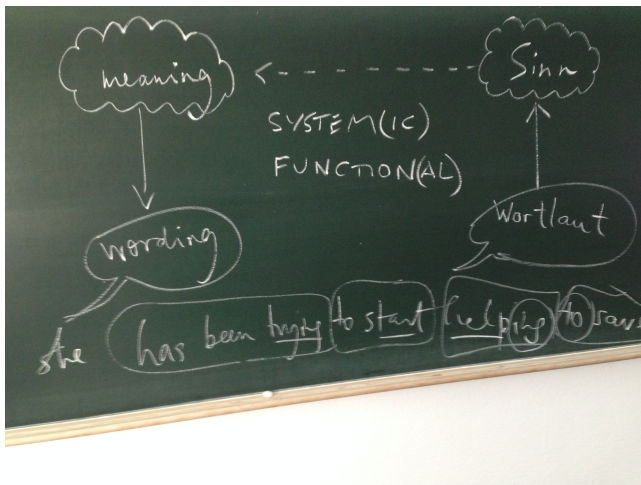 meaning
Sinn
SYSTEM(IC)
FUNCTION(AL)
wording
Wortlaut
she has been trying to start helping to save